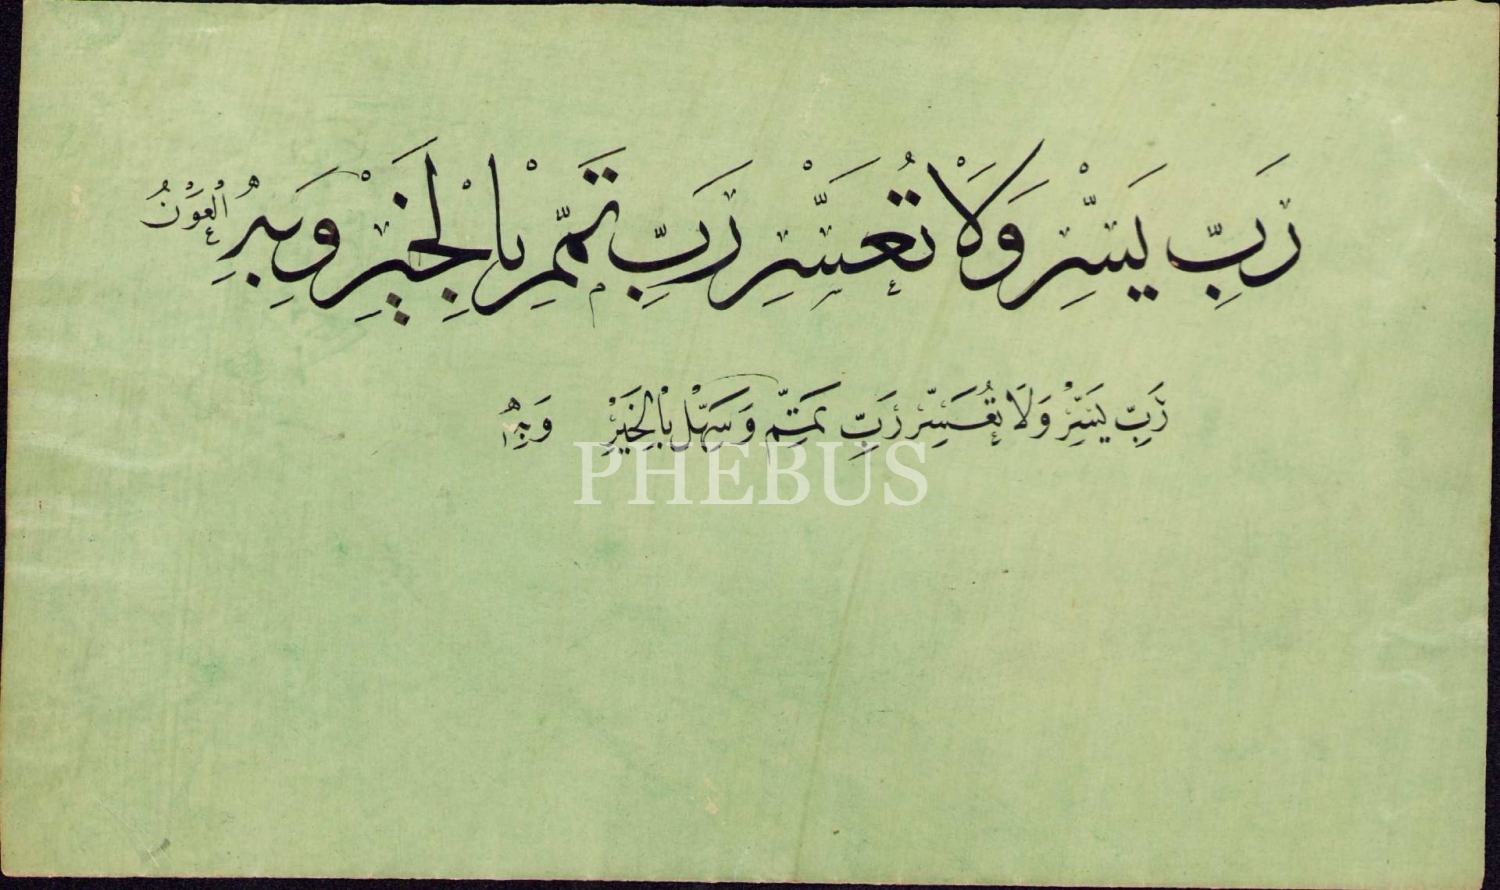 رَبِّ يَسِّرْ وَلَا تُعَسِّرْ رَبِّ تَمِّمْ بِالْخَيْرِ وَبِهِ الْعَوْنُ
رَبِّ يَسِّرْ وَلَا تُعَسِّرْ رَبِّ تَمِّمْ وَسَهِّلْ بِالْخَيْرِ
PHEBUS